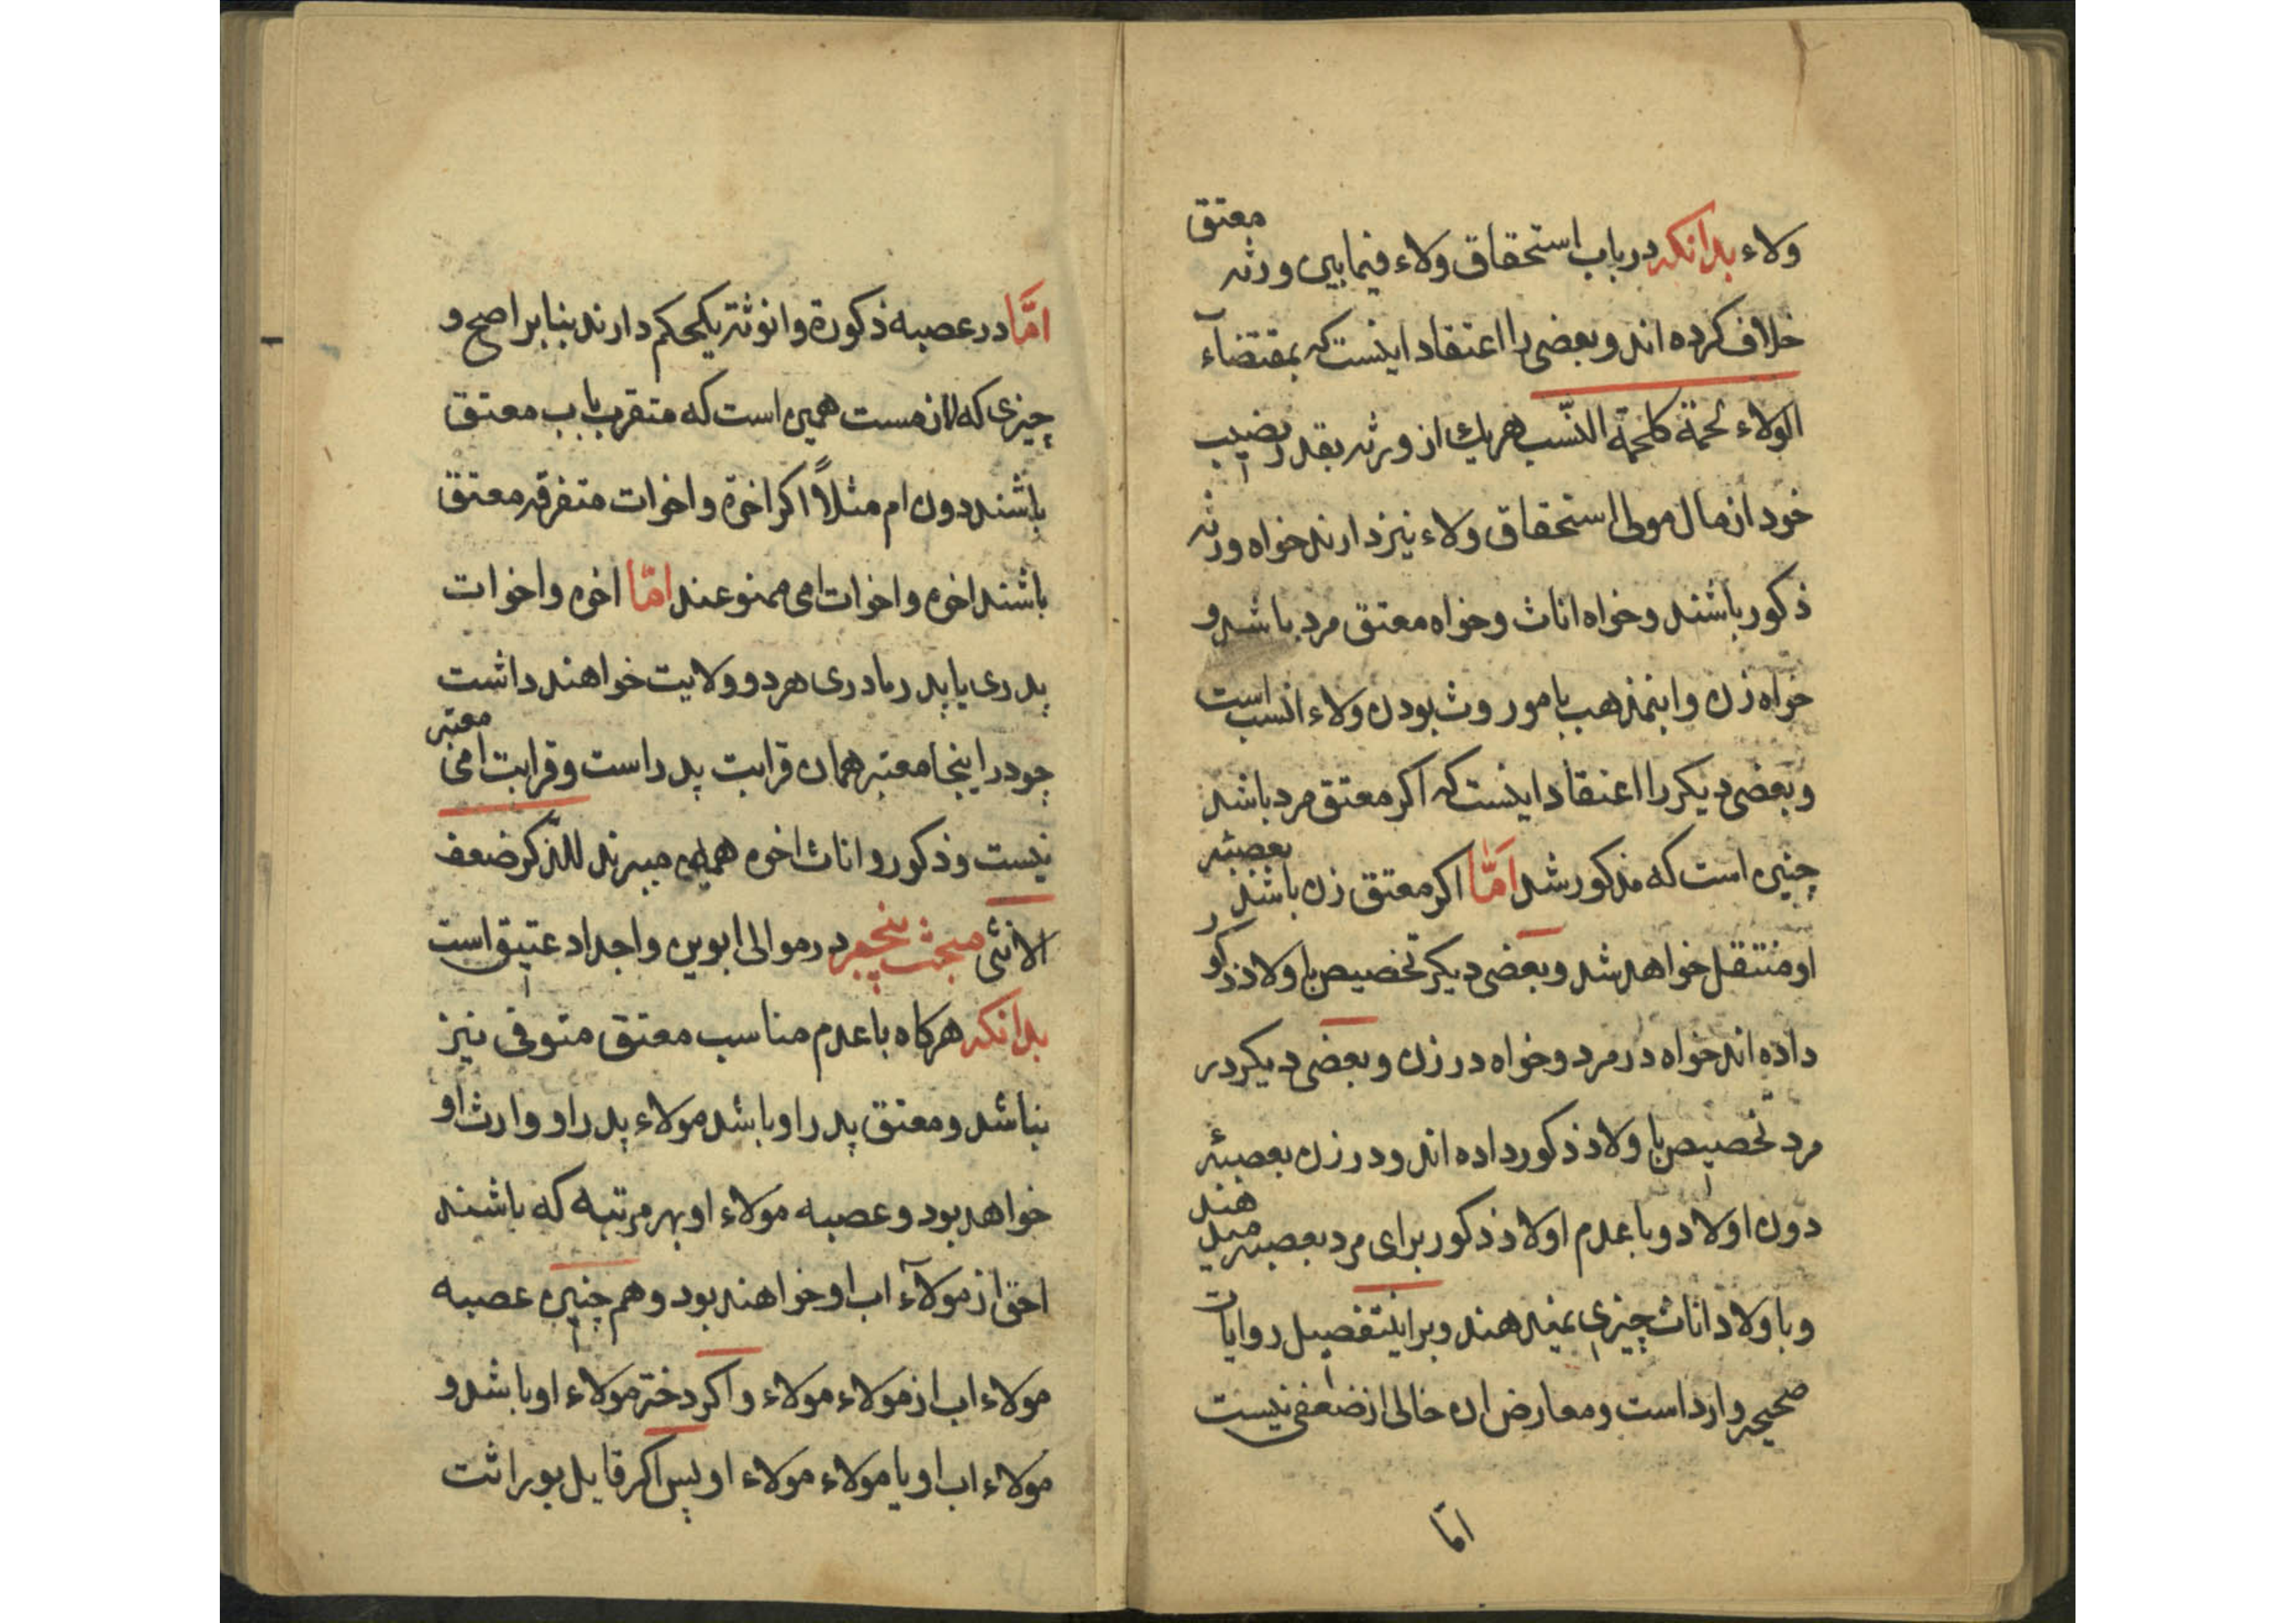 ولاء بدانکه در باب استحقاق ولاء فیمابین ورثه معتق
خلاف کرده اند و بعضی را اعتقاد اینست که بمقتضآء
الولاء لحمة کلحمة النّسب هر یك از ورثه بقدر نصیب
خود از مال مولی استحقاق ولاء نیز دارند خواه ورثه
ذکور باشند و خواه اناث و خواه معتق مرد باشد و
خواه زن و اینمذهب با موروث بودن ولاء انسب است
و بعضی دیکر را اعتقاد اینست که اکر معتق مرد باشد
چنین است که مذکور شد امّا اکر معتق زن باشد بعصبئه
او منتقل خواهد شد و بعضی دیکر تخصیص باولاد ذکور
داده اند خواه در مرد و خواه در زن و بعضی دیکر در
مرد تخصیص باولاد ذکور داده اند و در زن بعصبئه
دون اولاد و با عدم اولاد ذکور برای مرد بعصبه میدهند
و باولاد اناث چیزی نمیدهند و بر اینتفصیل روایات
صحیحه وارد است و معارض ان خالی از ضعفی نیست
امّا
امّا در عصبه ذکورة و انوثة یکحکم دارند بنابر اصح و
چیزی که لازمست همین است که متقرب باب معتق
باشند دون ام مثلاً اکر اخوة و اخوات متفرقه معتق
باشند اخوه و اخوات امی ممنوعند امّا اخوه و اخوات
پدری یا پدر مادری هر دو ولایت خواهند داشت
چو در اینجا معتبر همان قرابت پدر است و قرابت امی معتبر
نیست و ذکور و اناث اخوه همین میبرند للذّکر ضعف
الانثی مبحث پنجم در موالی ابوین و اجداد عتیق است
بدانکه هرکاه با عدم مناسب معتق متوفی نیز
نباشد و معتق پدر او باشد مولاء پدر او وارث او
خواهد بود و عصبه مولاء او بهر مرتبه که باشند
احق از مولآء اب او خواهند بود و هم چنین عصبه
مولاء اب از مولاء مولاء و اکر دختر مولاء او باشد و
مولاء اب او یا مولاء مولاء او پس اکر قایل بوراثت